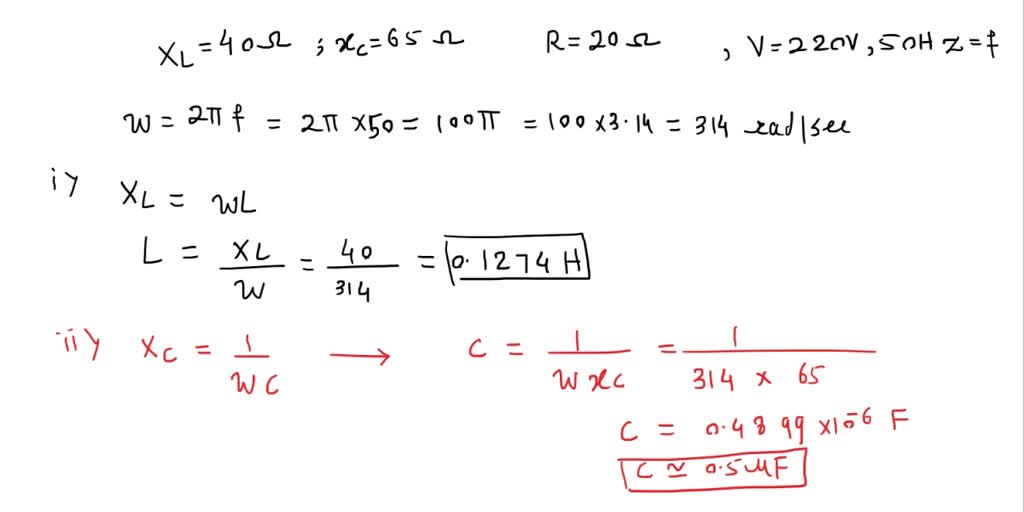 XL = 40Ω ; xc = 65 Ω R = 20 Ω , V = 220V, 50Hz = f
W = 2π f = 2π × 50 = 100π = 100 × 3.14 = 314 rad/sec
i) XL = WL
L = XL/W = 40/314 = 0.1274 H
ii) XC = 1/WC → C = 1/W xc = 1/314 × 65
C = 0.4899 × 10^-6 F
C ≃ 0.5 MF